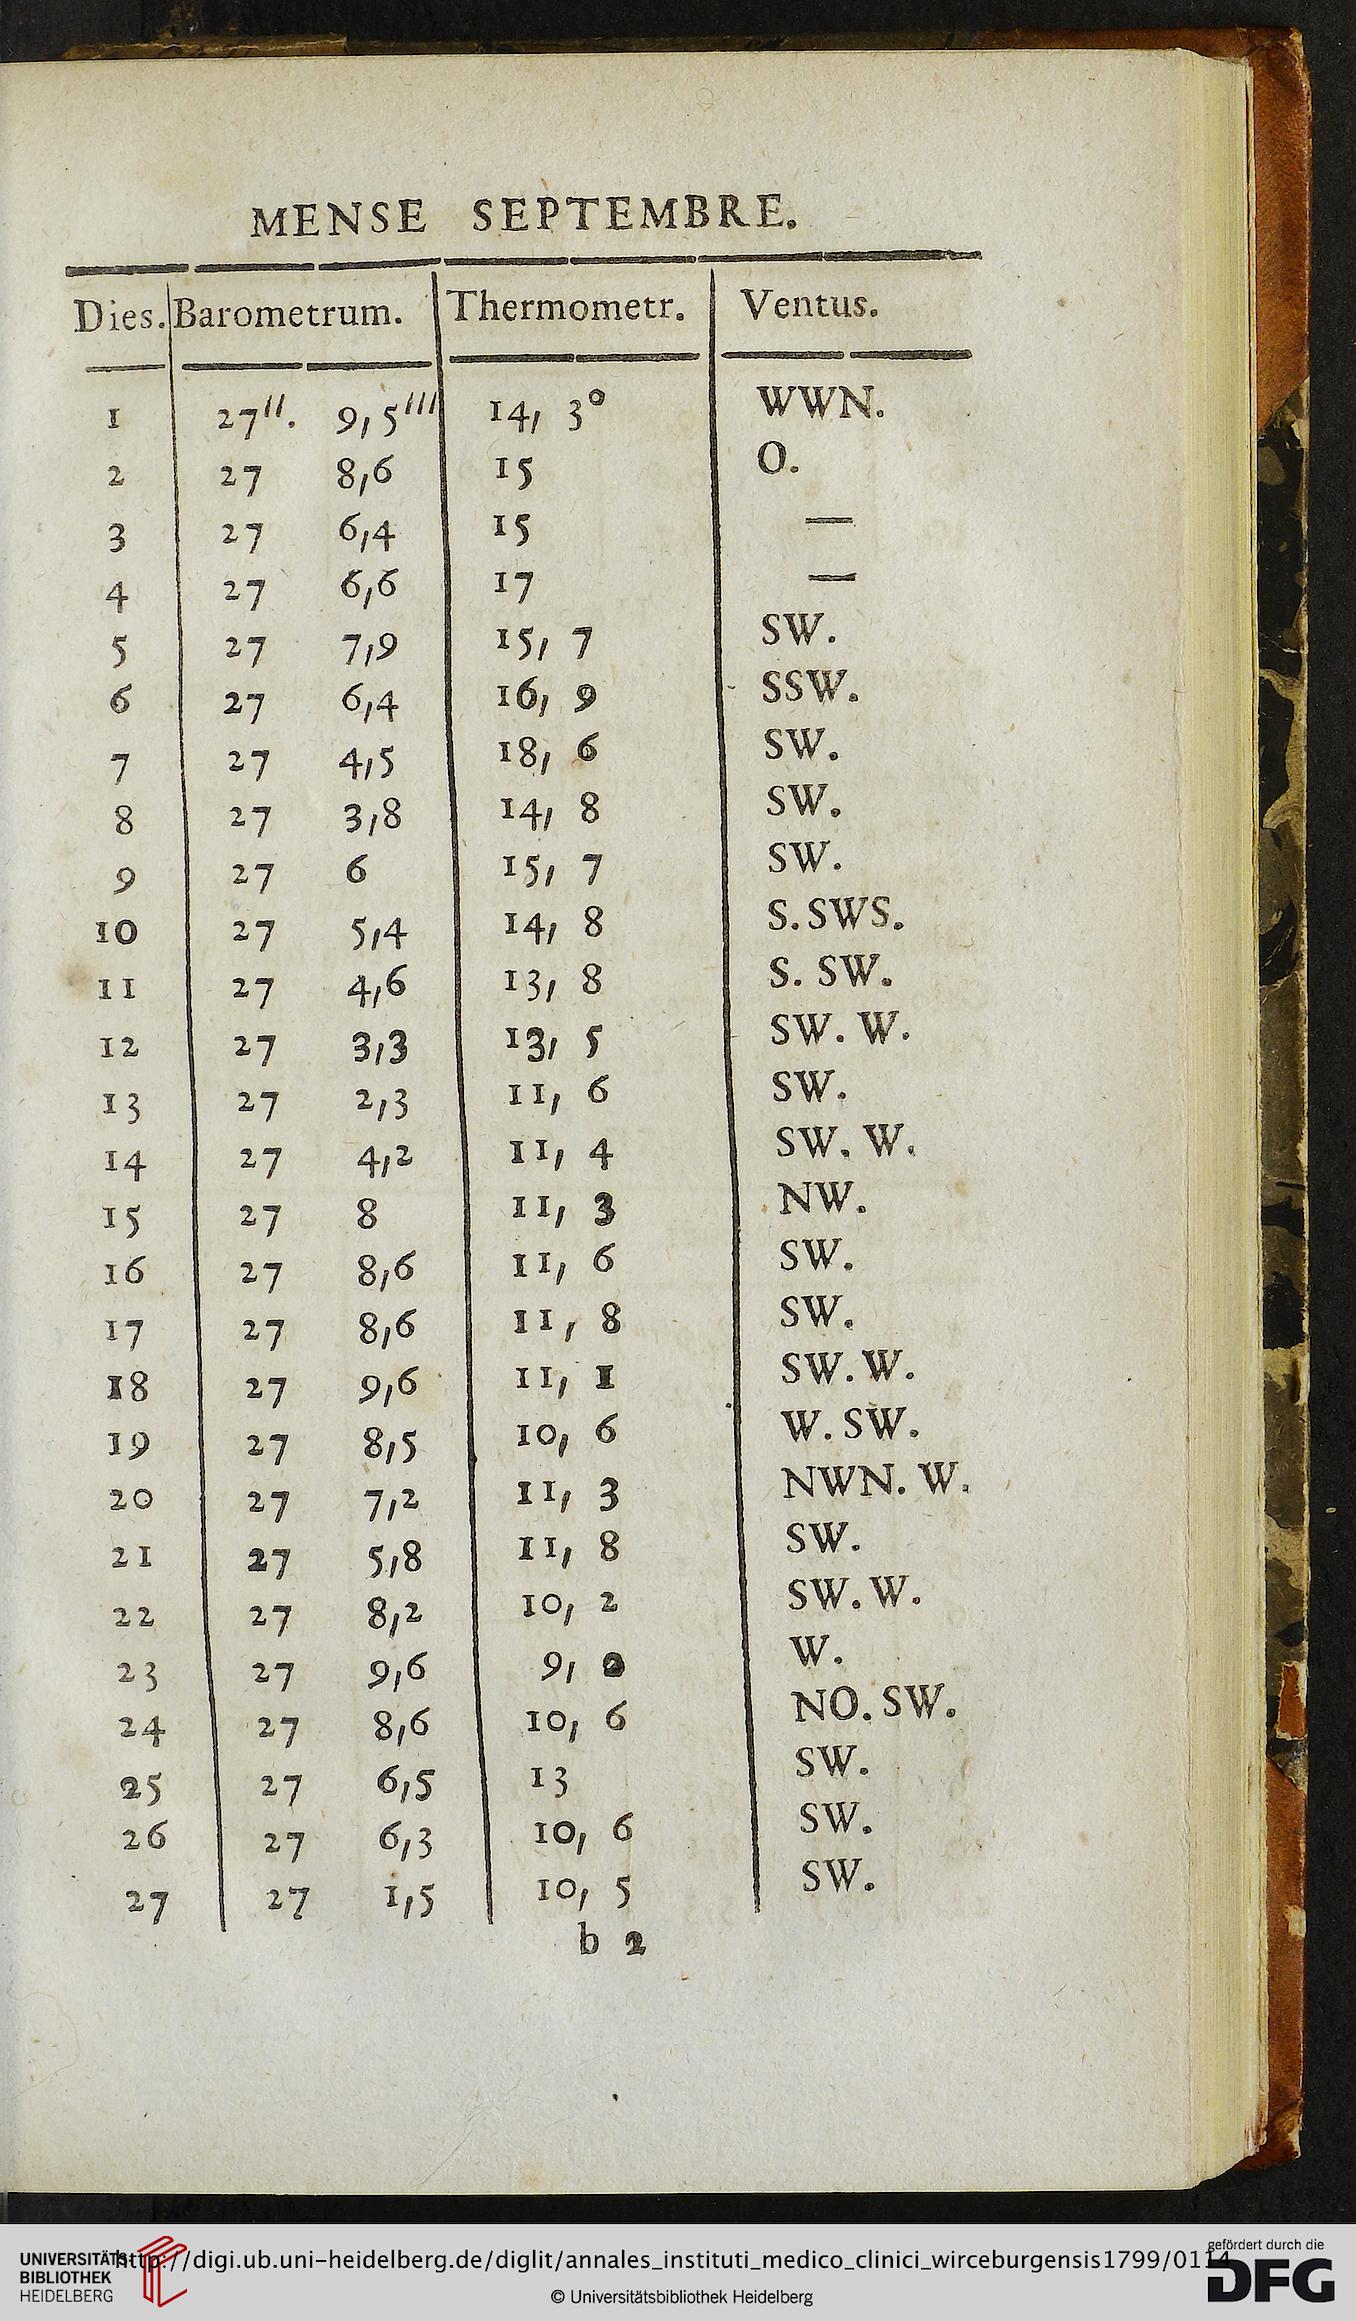 MENSE SEPTEMBRE.
Dies. Barometrum. Thermometr. Ventus.
1 27′′. 9,5′′′ 14, 3° WWN.
2 27 8,6 15 O.
3 27 6,4 15 —
4 27 6,6 17 —
5 27 7,9 15, 7 SW.
6 27 6,4 16, 9 SSW.
7 27 4,5 18, 6 SW.
8 27 3,8 14, 8 SW.
9 27 6 15, 7 SW.
10 27 5,4 14, 8 S.SWS.
11 27 4,6 13, 8 S. SW.
12 27 3,3 13, 5 SW. W.
13 27 2,3 11, 6 SW.
14 27 4,2 11, 4 SW. W.
15 27 8 11, 3 NW.
16 27 8,6 11, 6 SW.
17 27 8,6 11, 8 SW.
18 27 9,6 11, 1 SW. W.
19 27 8,5 10, 6 W. SW.
20 27 7,2 11, 3 NWN. W.
21 27 5,8 11, 8 SW.
22 27 8,2 10, 2 SW. W.
23 27 9,6 9, W.
24 27 8,6 10, 6 NO. SW.
25 27 6,5 13 SW.
26 27 6,3 10, 6 SW.
27 27 1,5 10, 5 SW.
b 2
UNIVERSITÄTS-
BIBLIOTHEK
HEIDELBERG
http://digi.ub.uni-heidelberg.de/diglit/annales_instituti_medico_clinici_wirceburgensis1799/0114
© Universitätsbibliothek Heidelberg
gefördert durch die
DFG